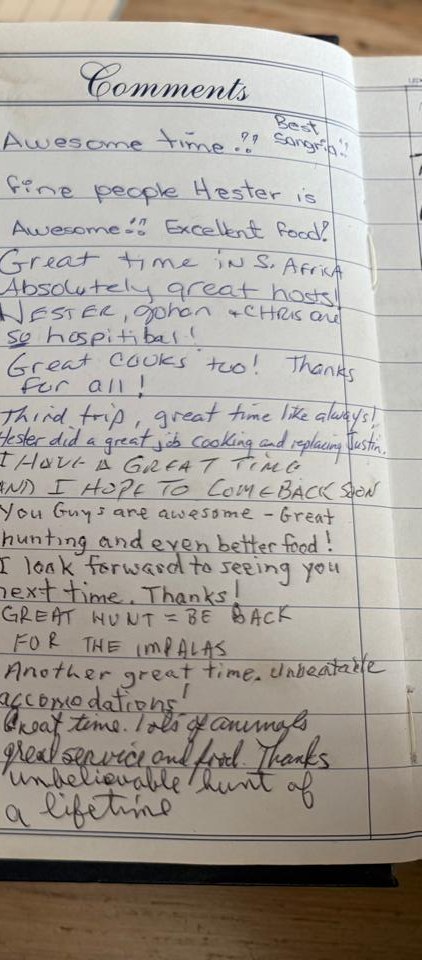 Comments
Awesome time!! Best Sangria!!
fine people Hester is
Awesome!! Excellent food!
Great time in S. Africa
Absolutely great hosts!
Hester, Johan + Chris are
so hospitibal!
Great cooks too! Thanks
for all!
Third trip, great time like always!
Hester did a great job cooking and replacing Justin.
I HAVE A GREAT TIME
AND I HOPE TO COME BACK SOON
You Guys are awesome - Great
hunting and even better food!
I look forward to seeing you
next time. Thanks!
GREAT HUNT = BE BACK
FOR THE IMPALAS
Another great time. Unbeatable
accomodations!
Great time. lots of animals
great service and food. Thanks
unbelievable hunt of
a lifetime